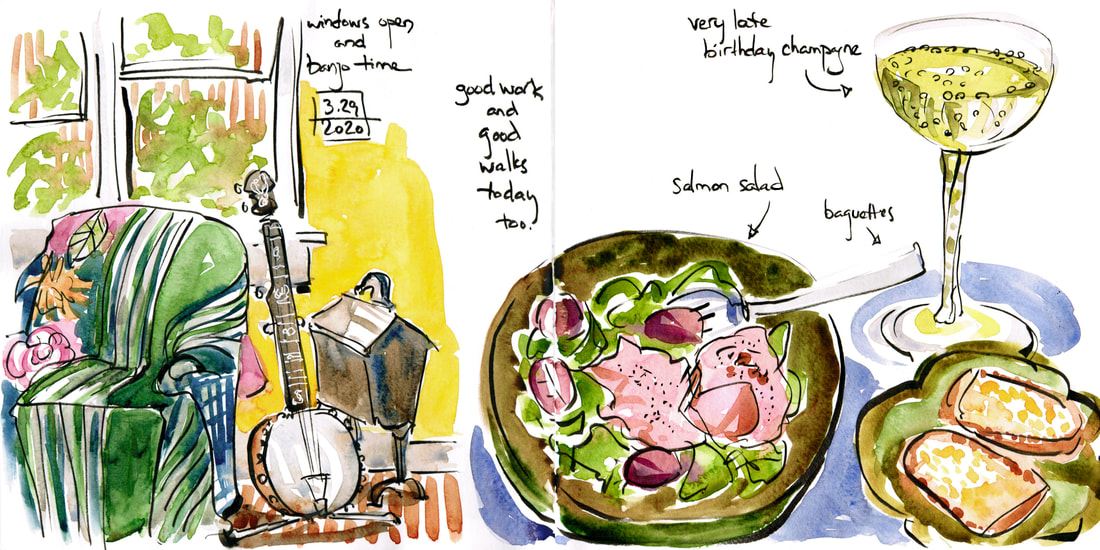 windows open
and
banjo time
3.29
2020
good work
and
good
walks
today
too.
very late
birthday champagne
salmon salad
baguettes